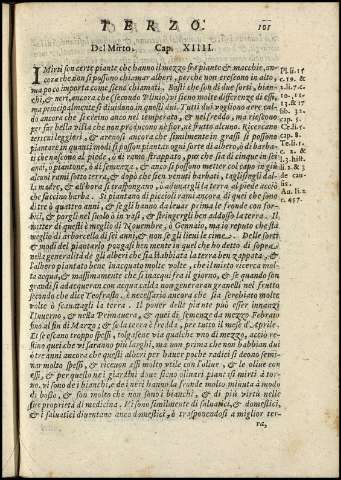 TERZO. 101
Del Mirto. Cap. XIIII.
I Mirti son certe piante che hanno il mezzo fra piante & macchie, an-
cora che non si possono chiamar alberi, perche non crescono in alto,
ma poco importa come siena chiamati. Basti che son di due sorti, bian-
chi, & neri, ancora che secondo Plinio vi siano molte differenze di essi, ma
principalmente si diuidano in questi dui. Tutti dui vogliono aere cal-
do ancora che si creino anco nel temperato, & nel freddo, ma riescono
per far bella vista che non producono nespole, ne frutto alcuno. Ricercano
terreni leggieri, & arenosi ancora che similmente in grassi si possono
piantare in quanti modi si posson piantar ogni sorte di albero, ò di barba-
ti che nascono al piede, ò di ramo strappato, pur che sia di cinque in sei
anni, ò piantone, ò di semenze, & anco si possono metter col capo in giu
alcuni rami sotto terra, & dopò, che son venuti barbati, tagliarsegli dal-
la madre, & all'hora si traspongano, ò adunargli la terra al piede acciò
che faccino barba. Si piantano di piccioli rami ancora di quei che sono
di tre ò quattro anni, & se gli hanno da leuar prima le fronde con for-
bici, & porgli nel suolo in vasi, & stringergli ben addosso la terra. Il
metter di questi è meglio di Nouembre, ò Gennaio, ma io reputo che stà
meglio di arborscelli di sei anni, & non se gli lieui le cime. Delle sorti
& modi del piantarlo pongasi ben mente in quel che ho detto di sopra
nella generalità de gli alberi che sia stabbiata la terra ben zappata, &
l'albero piantato bene inacquato molte volte, che il mirto ricerca mol-
ta acqua, & massimamente che s'inacqui fra il giorno, & se quando son
grandi si adacqueran con acqua calda non genereran granelli nel frutto
secondo che dice Teofrasto, è necessario ancora che sia serchiato molte
volte ò scauzzagli la terra. Il poner delle piante può esser innanzi
l'inuerno, & nella Primauera, & quei di semenze da mezzo Febraro
fino al fin di Marzo, & se la terra è fredda, per tutto il mese d'Aprile.
Et se escano troppo spessi, tolgasene via qualche vno di mezzo, acciò re-
stino quei che vi saranno più larghi, ma non prima che non habbian dui
ò tre anni ancora che questi alberi per hauer poche radici si deono semi-
nar molto spessi, & riceuon essi molto vtile con l'oliue, & le oliue con
essi, & per questo ne i giardini doue siano oliueti pianti si mirti à tor-
no. vi sono de i bianchi, & dei neri hanno la fronde molto minuta à modo
di bosso, & son molto che non sono i bianchi, & di più virtù nelle
sue proprietà di medicina. Vi sono similmente di saluatici, & domestici,
& i saluatici diuentano anco domestici, ò trasponedosi a miglior ter-
ra,
Pl. li. 15
c. 29. &
2. li. 7. c.
10. 11.
13. & 17
lib. 20.
cap. 5.
Cr. li. 5
cap. 8.
Te. li. 1.
c. 2. &
li. 2. & 3
de cau-
sis.
Au. li. 2
c. 457.